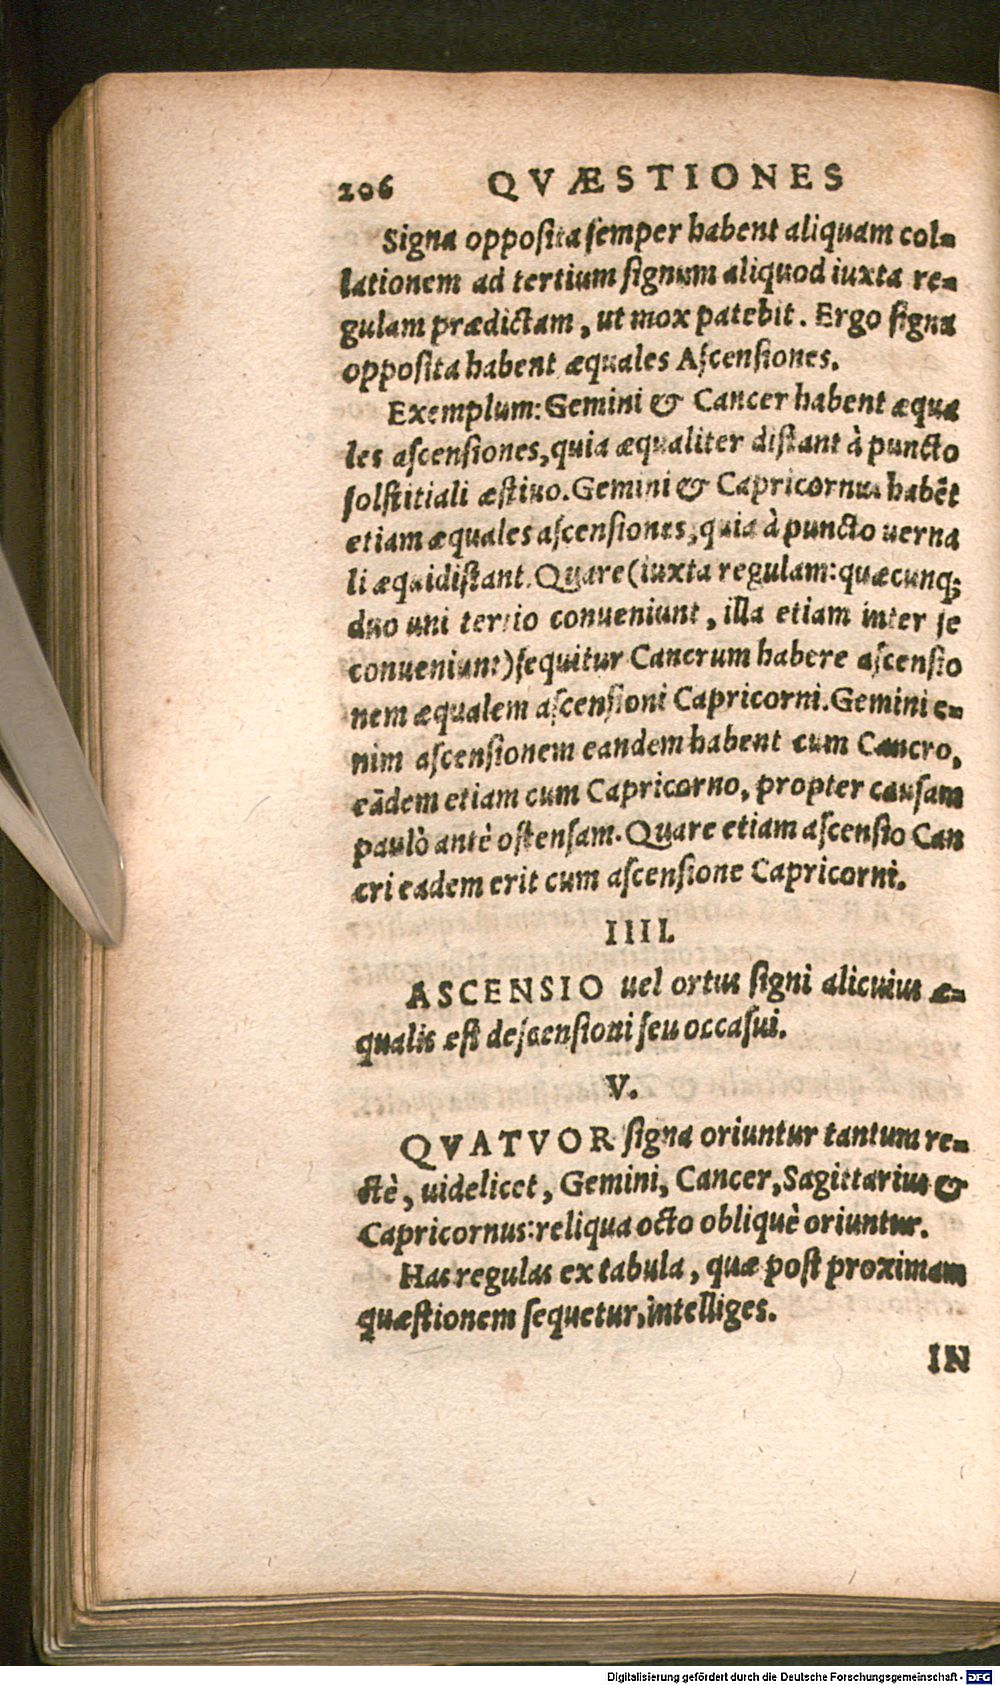 206 QVÆSTIONES
Signa opposita semper habent aliquam col-
lationem ad tertium signum aliquod iuxta re-
gulam prædictam, ut mox patebit. Ergo signa
opposita habent æquales Ascensiones.
Exemplum: Gemini & Cancer habent æqua
les ascensiones, quia æqualiter distant à puncto
solstitiali æstiuo. Gemini & Capricornus habēt
etiam æquales ascensiones, quia à puncto uerna
li æquidistant. Quare (iuxta regulam: quæcunq;
duo uni tertio conueniunt, illa etiam inter se
conueniunt) sequitur Cancrum habere ascensio
nem æqualem ascensioni Capricorni. Gemini e-
nim ascensionem eandem habent cum Cancro,
eādem etiam cum Capricorno, propter causam
paulò antè ostensam. Quare etiam ascensio Can
cri eadem erit cum ascensione Capricorni.
IIII.
ASCENSIO uel ortus signi alicuius æ-
qualis est descensioni seu occasui.
V.
QVATVOR signa oriuntur tantum re-
ctè, uidelicet, Gemini, Cancer, Sagittarius &
Capricornus: reliqua octo obliquè oriuntur.
Has regulas ex tabula, quæ post proximam
quæstionem sequetur, intelliges.
IN
Digitalisierung gefördert durch die Deutsche Forschungsgemeinschaft - DFG